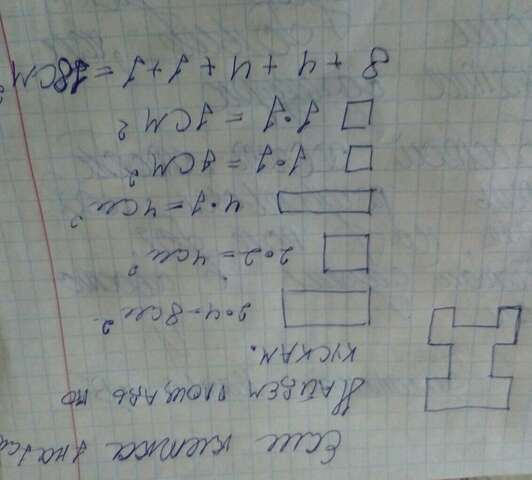 Если клетка
Найдем площадь по
кускам.
2•4=8см²
2•2=4см²
4•1=4см²
1•1=1см²
1•1=1см²
8+4+4+1+1=18см²